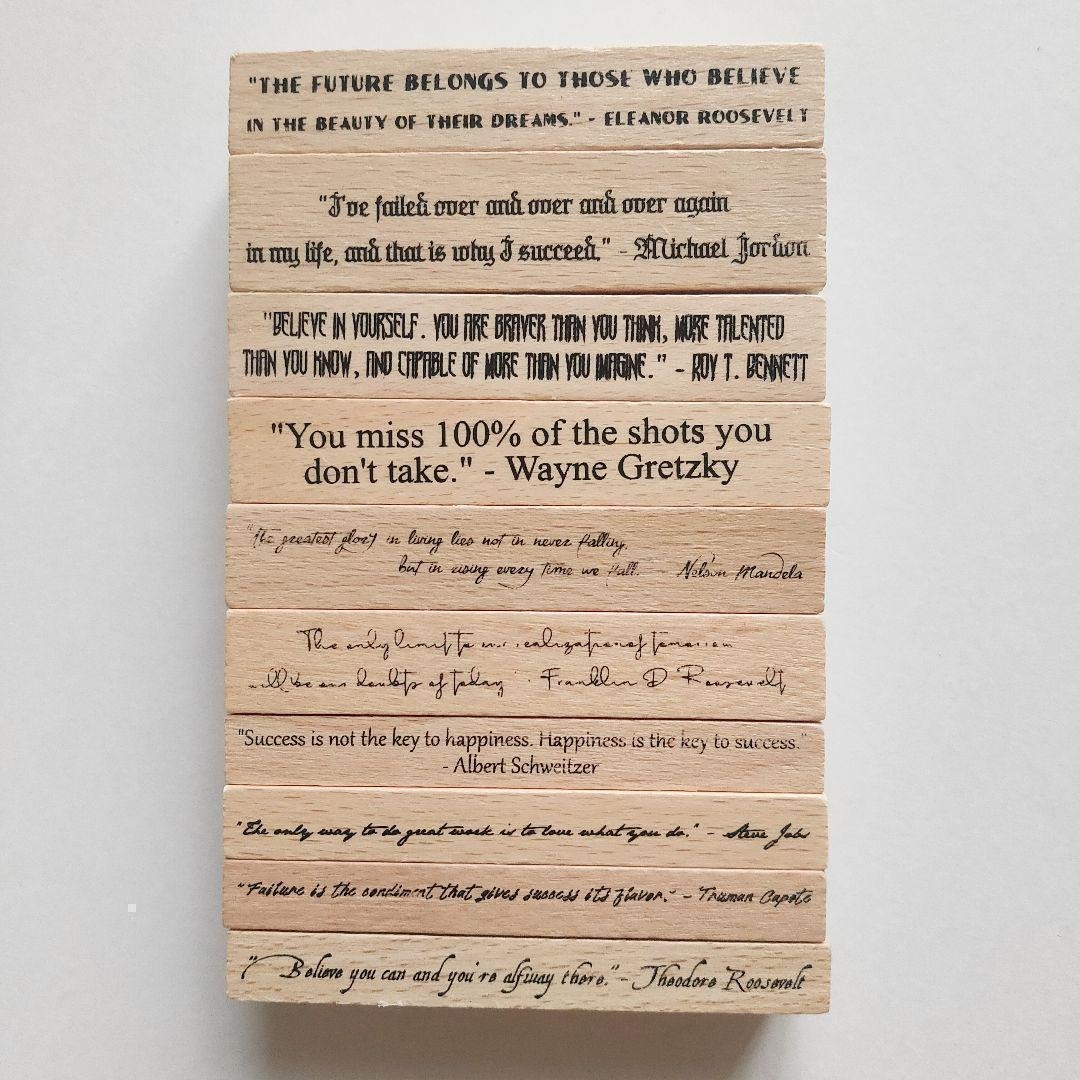 "THE FUTURE BELONGS TO THOSE WHO BELIEVE
IN THE BEAUTY OF THEIR DREAMS." - ELEANOR ROOSEVELT
"I've failed over and over and over again
in my life, and that is why I succeed." - Michael Jordon
"BELIEVE IN YOURSELF. YOU ARE BRAVER THAN YOU THINK, MORE TALENTED
THAN YOU KNOW, AND CAPABLE OF MORE THAN YOU IMAGINE." - ROY T. BENNETT
"You miss 100% of the shots you
don't take." - Wayne Gretzky
"The greatest glory in living lies not in never falling,
but in rising every time we fall. - Nelson Mandela
The only limit to our realization of tomorrow
will be our doubts of today - Franklin D Roosevelt
"Success is not the key to happiness. Happiness is the key to success."
- Albert Schweitzer
"The only way to do great work is to love what you do." - Steve Jobs
"Failure is the condiment that gives success its flavor." - Truman Capote
"Believe you can and you're alfway there." - Theodore Roosevelt